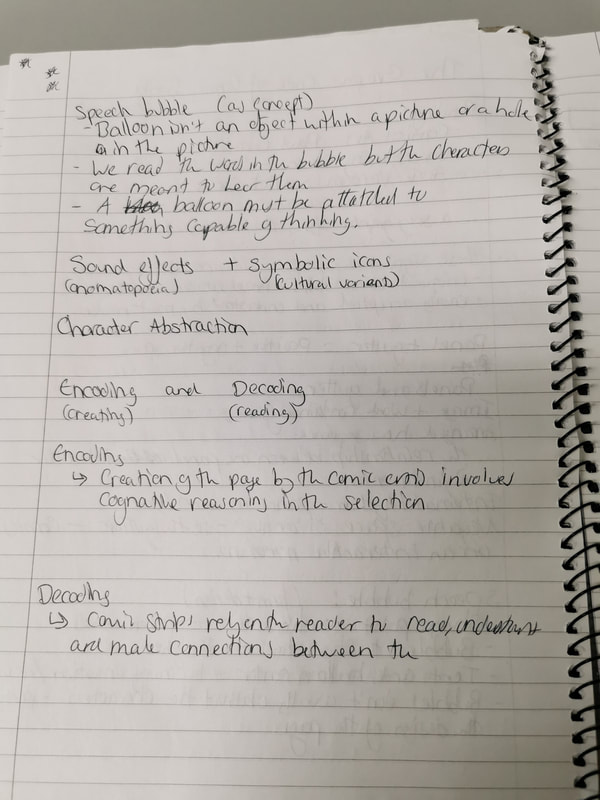 Speech bubble (as concept)
- Balloon isn't an object within a picture or a hole
in the picture
- We read the words in the bubble but the characters
are meant to hear them
- A balloon must be attatched to
something capable of thinking.
Sound effects + symbolic icons
(onomatopoeia) (cultural variends)
Character Abstraction
Encoding and Decoding
(creating) (reading)
Encoding
↳ Creation of the page by the comic involves
Cognative reasoning in the selection
Decoding
↳ Comic strips rely on the reader to read, understand
and make connections between the